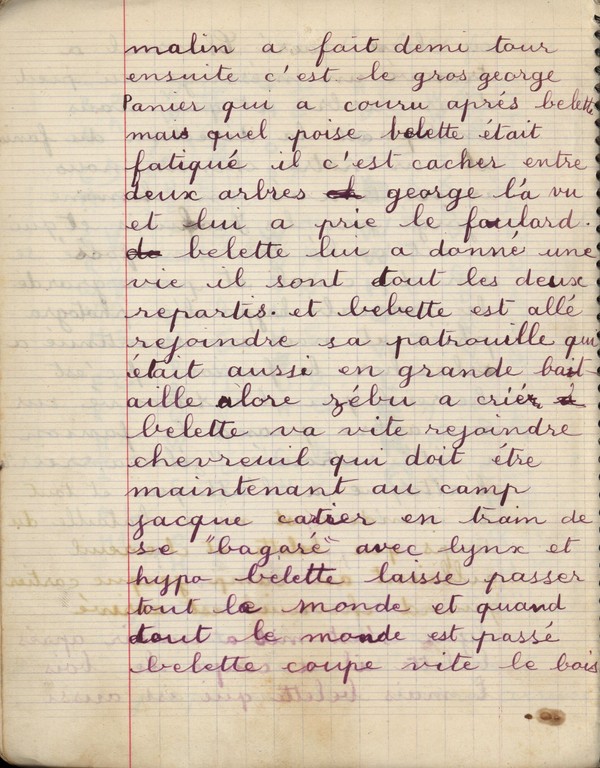 malin a fait demi tour
ensuite c'est le gros george
Panier qui a couru aprés belette
mais quel poise belette était
fatiqué il c'est cacher entre
deux arbres george l'a vu
et lui a prie le foulard.
belette lui a donné une
vie il sont tout les deux
repartis. et bebette est allé
rejoindre sa patrouille qui
était aussi en grande bait-
aille alore zébu a criér
belette va vite rejoindre
chevreuil qui doit étre
maintenant au camp
jacque catier en train de
se "bagaré" avec lynx et
hypo belette laisse passer
tout le monde et quand
tout le monde est passé
belette coupe vite le bois